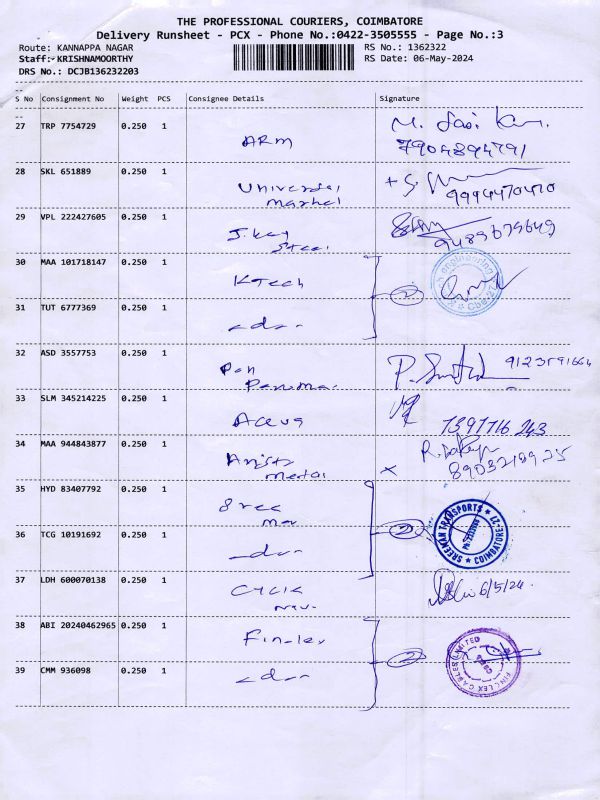 THE PROFESSIONAL COURIERS, COIMBATORE
Delivery Runsheet - PCX - Phone No.:0422-3505555 - Page No.:3
Route: KANNAPPA NAGAR
RS No.: 1362322
Staff:- KRISHNAMOORTHY
RS Date: 06-May-2024
DRS No.: DCJB136232203
S No Consignment No Weight PCS Consignee Details Signature
27 TRP 7754729 0.250 1 ARM
7904894791
28 SKL 651889 0.250 1 Universal
market
9994470410
29 VPL 222427605 0.250 1 J. key
Steel
9489679649
30 MAA 101718147 0.250 1 KTech
2
31 TUT 6777369 0.250 1 -do-
32 ASD 3557753 0.250 1 Pon
9123591664
33 SLM 345214225 0.250 1
7397716 243
34 MAA 944843877 0.250 1
metal
8903218925
35 HYD 83407792 0.250 1 Sree
2
SREEMAN TRANSPORTS
COIMBATORE-27
36 TCG 10191692 0.250 1 -do-
37 LDH 600070138 0.250 1
6/5/24.
38 ABI 20240462965 0.250 1 Finolex
2
FINOLEX CABLES LIMITED
39 CMM 936098 0.250 1 -do-